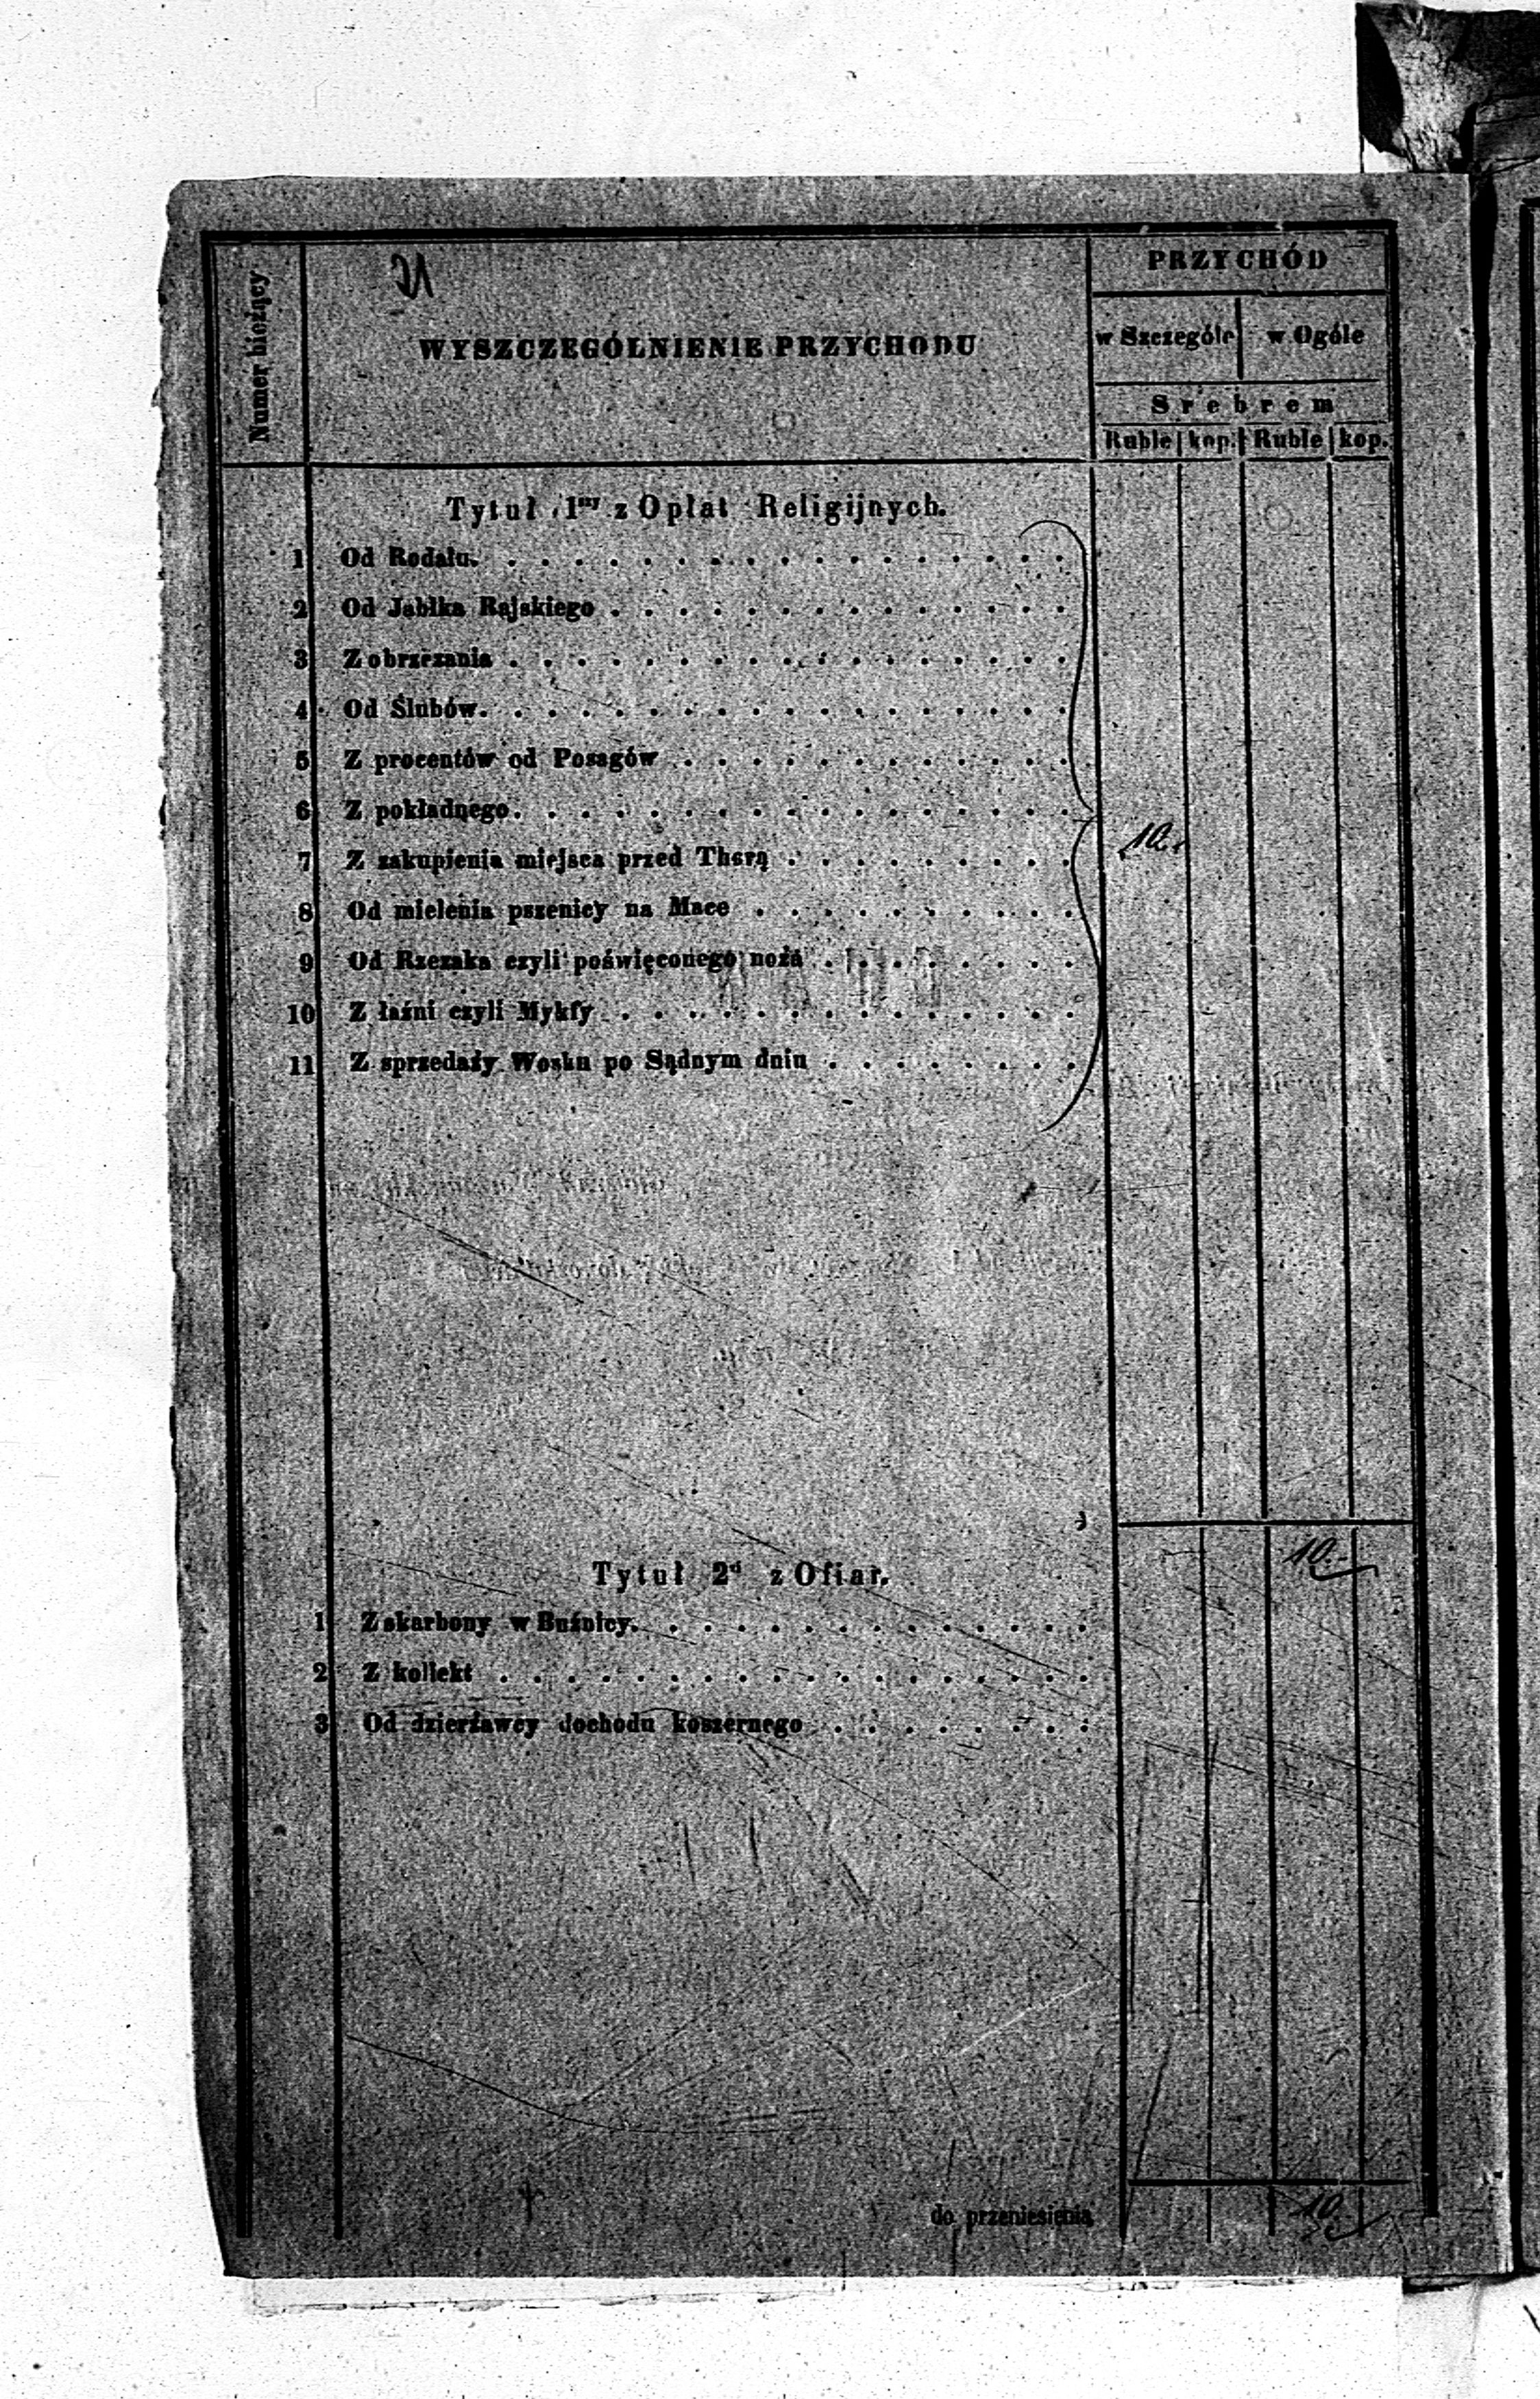 21
PRZYCHÓD
Numer bieżący
WYSZCZEGÓLNIENIE PRZYCHODU
w Szczególe w Ogóle
Srebrem
Ruble kop. Ruble kop.
Tytuł 1szy z Opłat Religijnych.
1 Od Rodału.
2 Od Jabłka Rajskiego
3 Z obrzezania
4 Od Ślubów.
5 Z procentów od Posagów
6 Z pokładnego.
7 Z zakupienia miejsca przed Thorą 10.
8 Od mielenia pszenicy na Mace
9 Od Rzezaka czyli poświęconego noża
10 Z łaźni czyli Mykfy
11 Z sprzedaży Wosku po Sądnym dniu
10.-
Tytuł 2i z Ofiar.
1 Z skarbony w Buźnicy.
2 Z kollekt
3 Od dzierżawcy dochodu koszernego
do przeniesienia 10.-